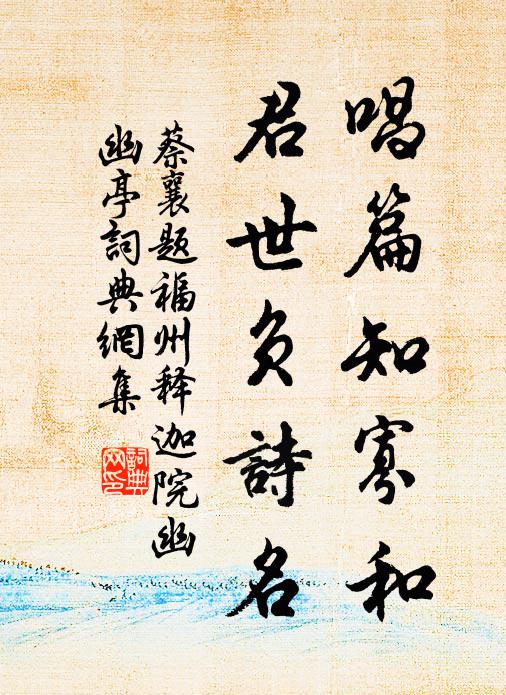 唱篇知寡和
君世负詩名
蔡襄题福州释迦院幽
幽亭詞典網集
詞典网印